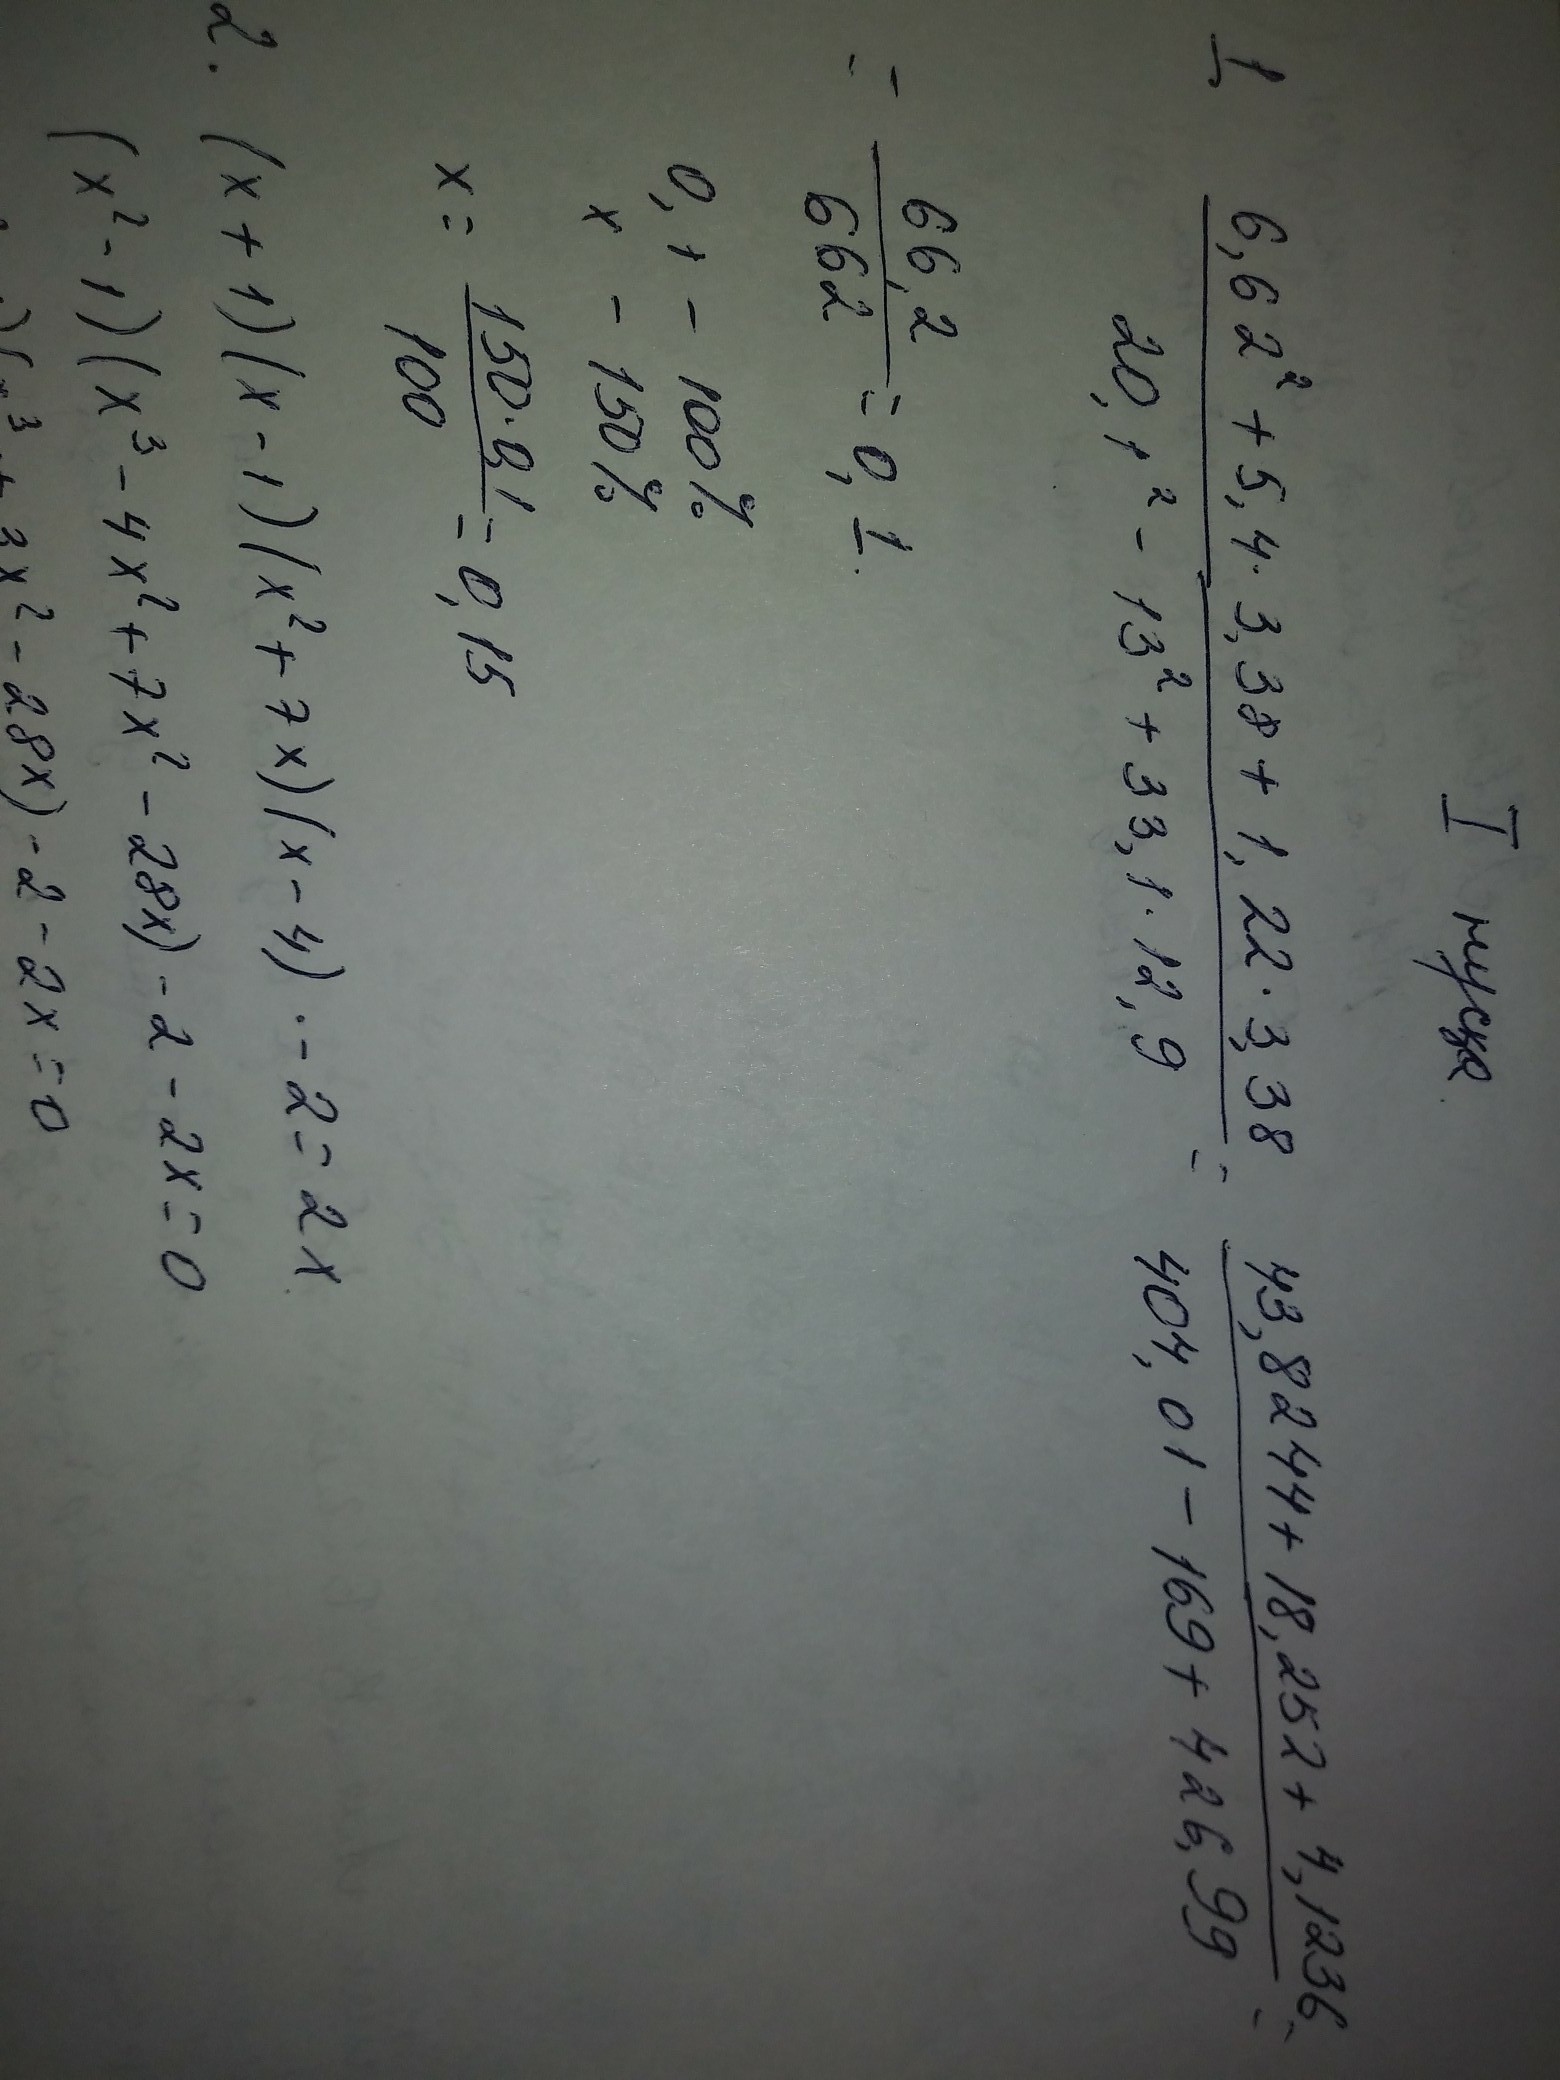 I нусқа.
1 6,62² + 5,4 · 3,38 + 1,22 · 3,38 / 20,1² - 13² + 33,1 · 12,9 = 43,8244 + 18,252 + 4,1236 / 404,01 - 169 + 426,99 =
= 66,2 / 662 = 0,1.
0,1 - 100%
x - 150%
x = 150 · 0,1 / 100 = 0,15
2. (x + 1)(x - 1)(x² + 7x)(x - 4) · - 2 = 2x
(x² - 1)(x³ - 4x² + 7x² - 28x) - 2 - 2x = 0
)(x³ + 3x² - 28x) - 2 - 2x = 0